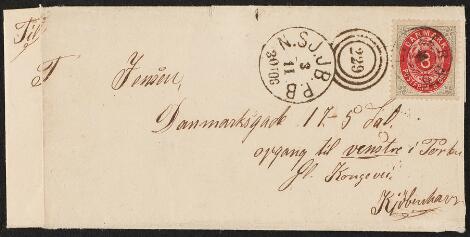 Til
T Jensen,
Danmarksgade 17-5 Sal
opgang til venstre i Porten
Gl. Kongevei
Kjöbenhavn
N.S.J.J.B P.B
3
11
229
DANMARK
8